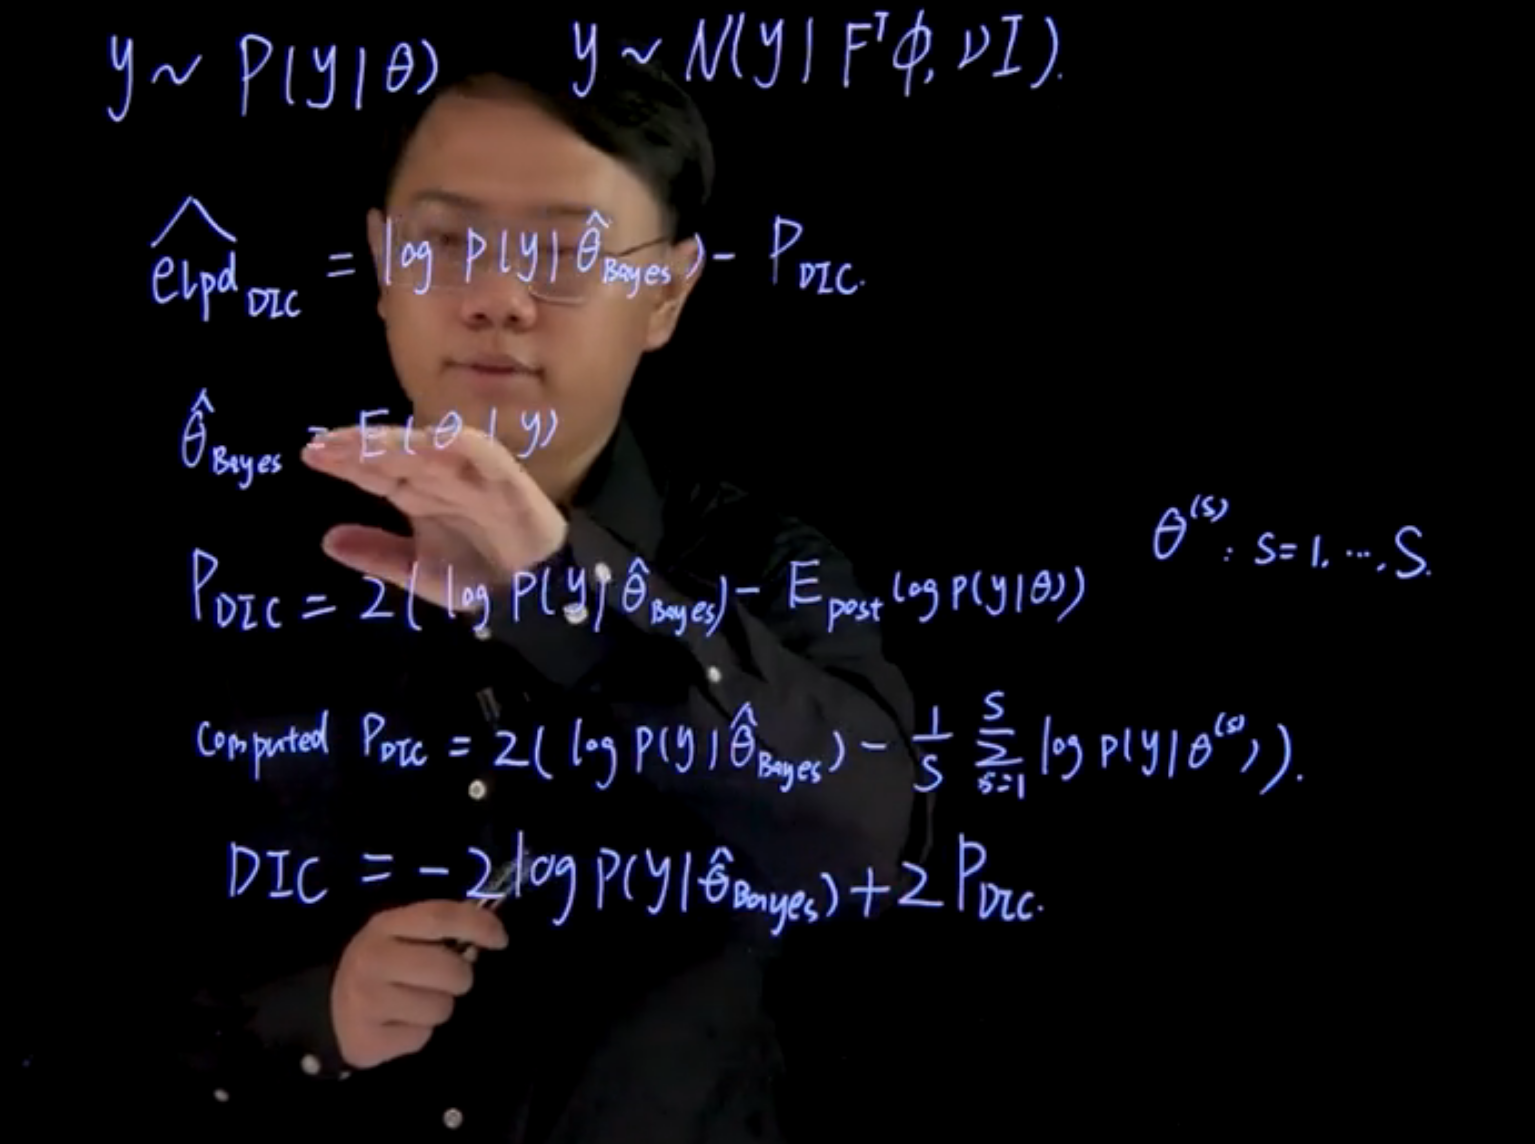 y ~ P(y|θ)    y ~ N(y| Fᵀϕ, νI).
êlpd_DIC = log P(y|θ̂_Bayes) - P_DIC.
θ̂_Bayes = E(θ|y)
θ^(s) : s=1, ..., S.
P_DIC = 2(log P(y|θ̂_Bayes) - E_post log P(y|θ))
computed P_DIC = 2(log P(y|θ̂_Bayes) - 1/S ∑_{s=1}^{S} log P(y|θ^(s))).
DIC = -2 log P(y|θ̂_Bayes) + 2 P_DIC.